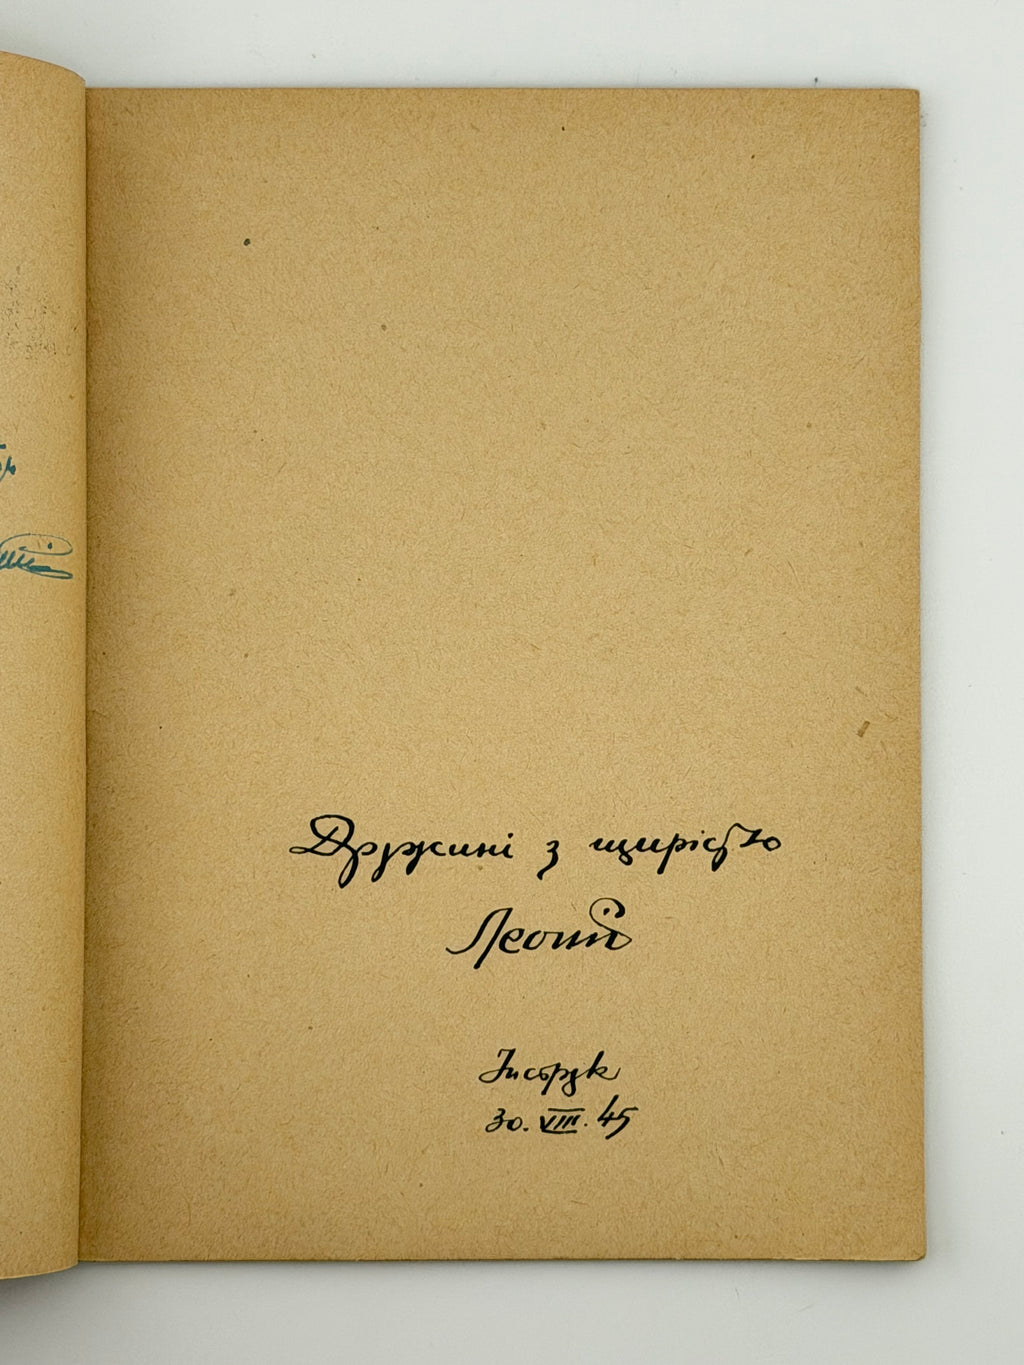 Дружині з щирістю
Інсбрук
30. VIII. 45